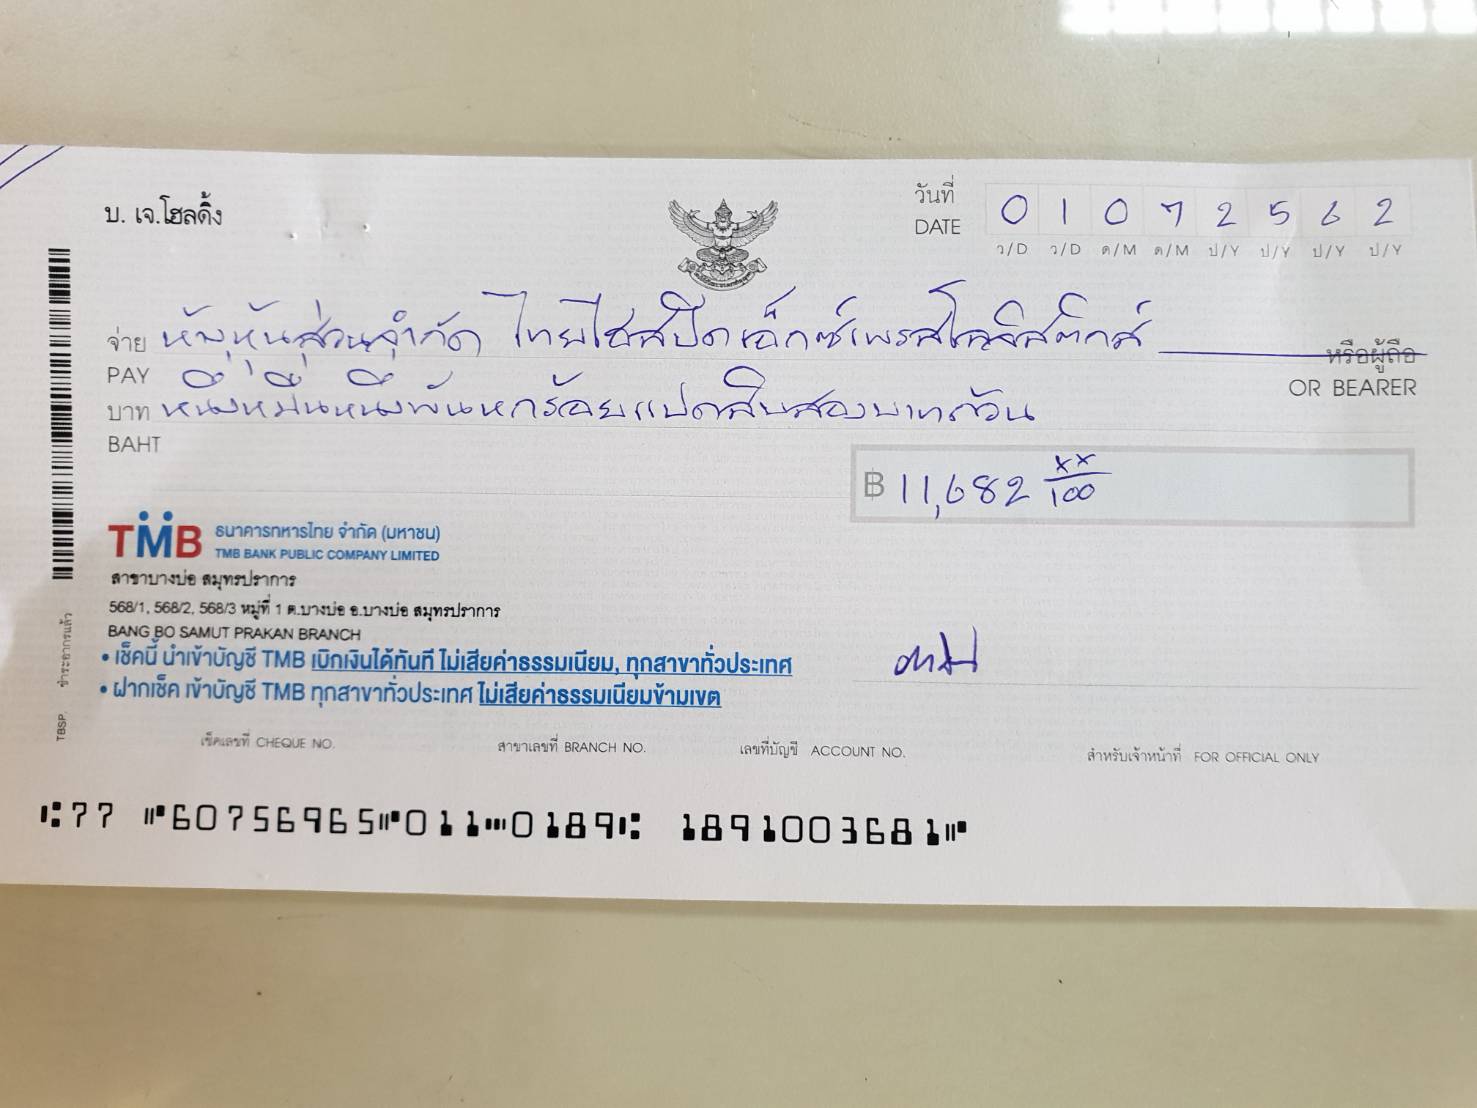 บ. เจ.โฮลดิ้ง
วันที่ 0 1 0 7 2 5 6 2
DATE ว/D ว/D ด/M ด/M ป/Y ป/Y ป/Y ป/Y
จ่าย ห้างหุ้นส่วนจำกัด ไทยไฮสปีดเอ็กซ์เพรสโลจิสติกส์ หรือผู้ถือ
PAY OR BEARER
บาท หนึ่งหมื่นหนึ่งพันหกร้อยแปดสิบสองบาทถ้วน
BAHT
฿ 11,682 xx/100
TMB ธนาคารทหารไทย จำกัด (มหาชน)
TMB BANK PUBLIC COMPANY LIMITED
สาขาบางบ่อ สมุทรปราการ
568/1, 568/2, 568/3 หมู่ที่ 1 ต.บางบ่อ อ.บางบ่อ สมุทรปราการ
BANG BO SAMUT PRAKAN BRANCH
• เช็คนี้ นำเข้าบัญชี TMB เบิกเงินได้ทันที ไม่เสียค่าธรรมเนียม, ทุกสาขาทั่วประเทศ
• ฝากเช็ค เข้าบัญชี TMB ทุกสาขาทั่วประเทศ ไม่เสียค่าธรรมเนียมข้ามเขต
TBSP. ชำระอากรแล้ว
เช็คเลขที่ CHEQUE NO. สาขาเลขที่ BRANCH NO. เลขที่บัญชี ACCOUNT NO. สำหรับเจ้าหน้าที่ FOR OFFICIAL ONLY
⑆77 ⑈60756965⑈011⑉0189⑆ 1891003681⑈